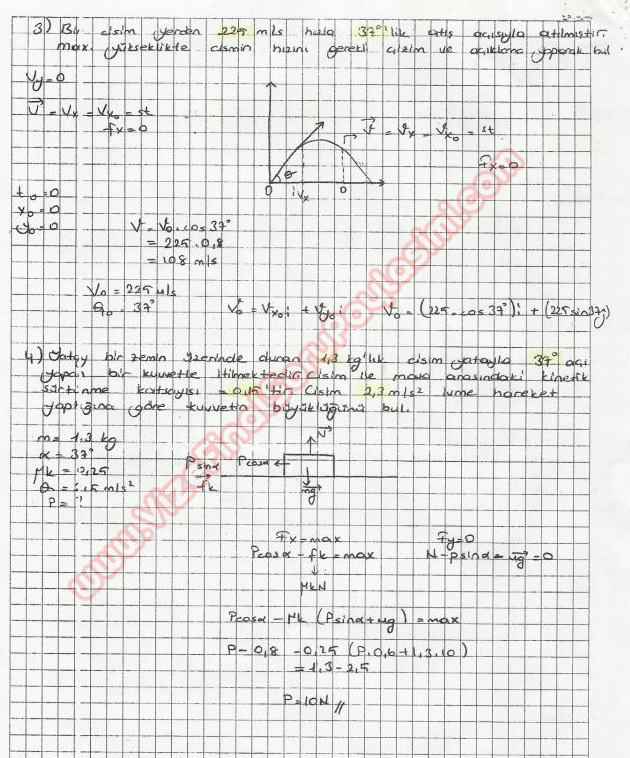 3) Bir cisim yerden 225 m/s hızla 37°'lik atış açısıyla atılmıştır.
max. yükseklikte cismin hızını gerekli çizim ve açıklama yaparak bul.
Vy=0
V = Vx = Vx0 = st
fx=0
V = Vx = Vx0 = st
Fx=0
θ
0
Vx
0
t0=0
x0=0
y0=0
V = V0.cos37°
= 225.0,8
= 108 m/s
V0 = 225 m/s
θ0 = 37°
V0 = Vx0 i + Vy0 j
V0 = (225.cos37°)i + (225sin37°j)
4) Yatay bir zemin üzerinde duran 1,3 kg'lık cisim yatayla 37° açı
yapan bir kuvvetle itilmektedir. Cisim ile masa arasındaki kinetik
sürtünme katsayısı = 0,15'tir. Cisim 2,3 m/s² ivme hareket
yaptığına göre kuvvetin büyüklüğünü bul.
m = 1,3 kg
α = 37°
μk = 0,25
P = ?
N
Psinα
Pcosα
fk
mg
Fx=max
Pcosα - fk = max
μkN
Fy=0
N - Psinα - mg = 0
Pcosα - μk (Psinα + mg) = max
P - 0,8 - 0,25 (P.0,6 + 1,3.10)
= 1,3 - 2,5
P = 10N //
www.VizeFinalSoruPaylasimi.com